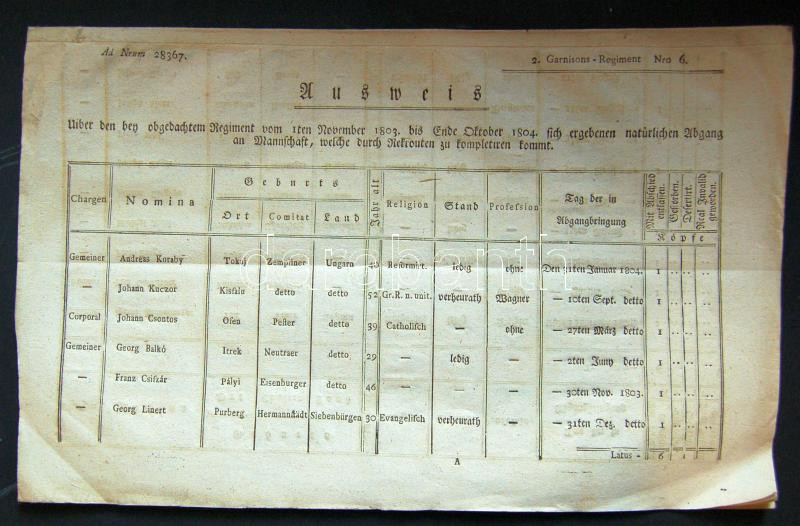 Ad Nrum 28367.
2. Garnisons-Regiment Nro 6.
Ausweis
Uiber den bey obgedachtem Regiment vom 1ten November 1803. bis Ende Oktober 1804. sich ergebenen natürlichen Abgang
an Mannschaft, welche durch Rekrouten zu kompletiren kommt.
Chargen Nomina Geburts Jahr alt Religion Stand Profession Tag der in Abgangbringung Mit Abschied entlassen. Gestorben. Desertirt. Real Invalid geworden.
Ort Comitat Land
Köpfe
Gemeiner Andreas Koraby Tokaj Zempliner Ungarn Reformirt. ledig ohne Den 31ten Januar 1804. 1 .. .. ..
— Johann Kuczor Kisfalu detto detto 52 Gr. R. n. unit. verheurath Wagner — 10ten Sept. detto 1 .. .. ..
Corporal Johann Csontos Ofen Pester detto 39 Catholisch — ohne — 27ten März detto 1 .. .. ..
Gemeiner Georg Balkó Itrek Neutraer detto 29 — ledig — — 2ten Juny detto 1 .. .. ..
— Franz Csiszár Pályi Eisenburger detto 46 — — — — 30ten Nov. 1803. 1 .. .. ..
— Georg Linert Purberg Hermannstädt Siebenbürgen 30 Evangelisch verheurath — — 31ten Dez. detto 1 .. .. ..
Latus - 6
A
darabanth